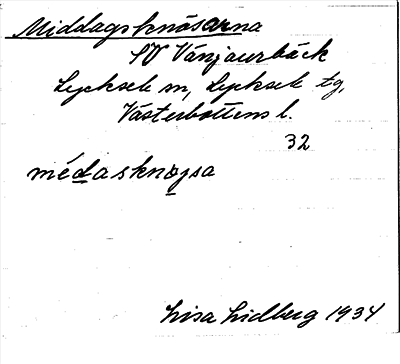 Middagsknösarna
SV Vänjaurbäck
Lycksele sn, Lycksele tg,
Västerbottens l.
32
médasknojsa
Lisa Lidberg 1934